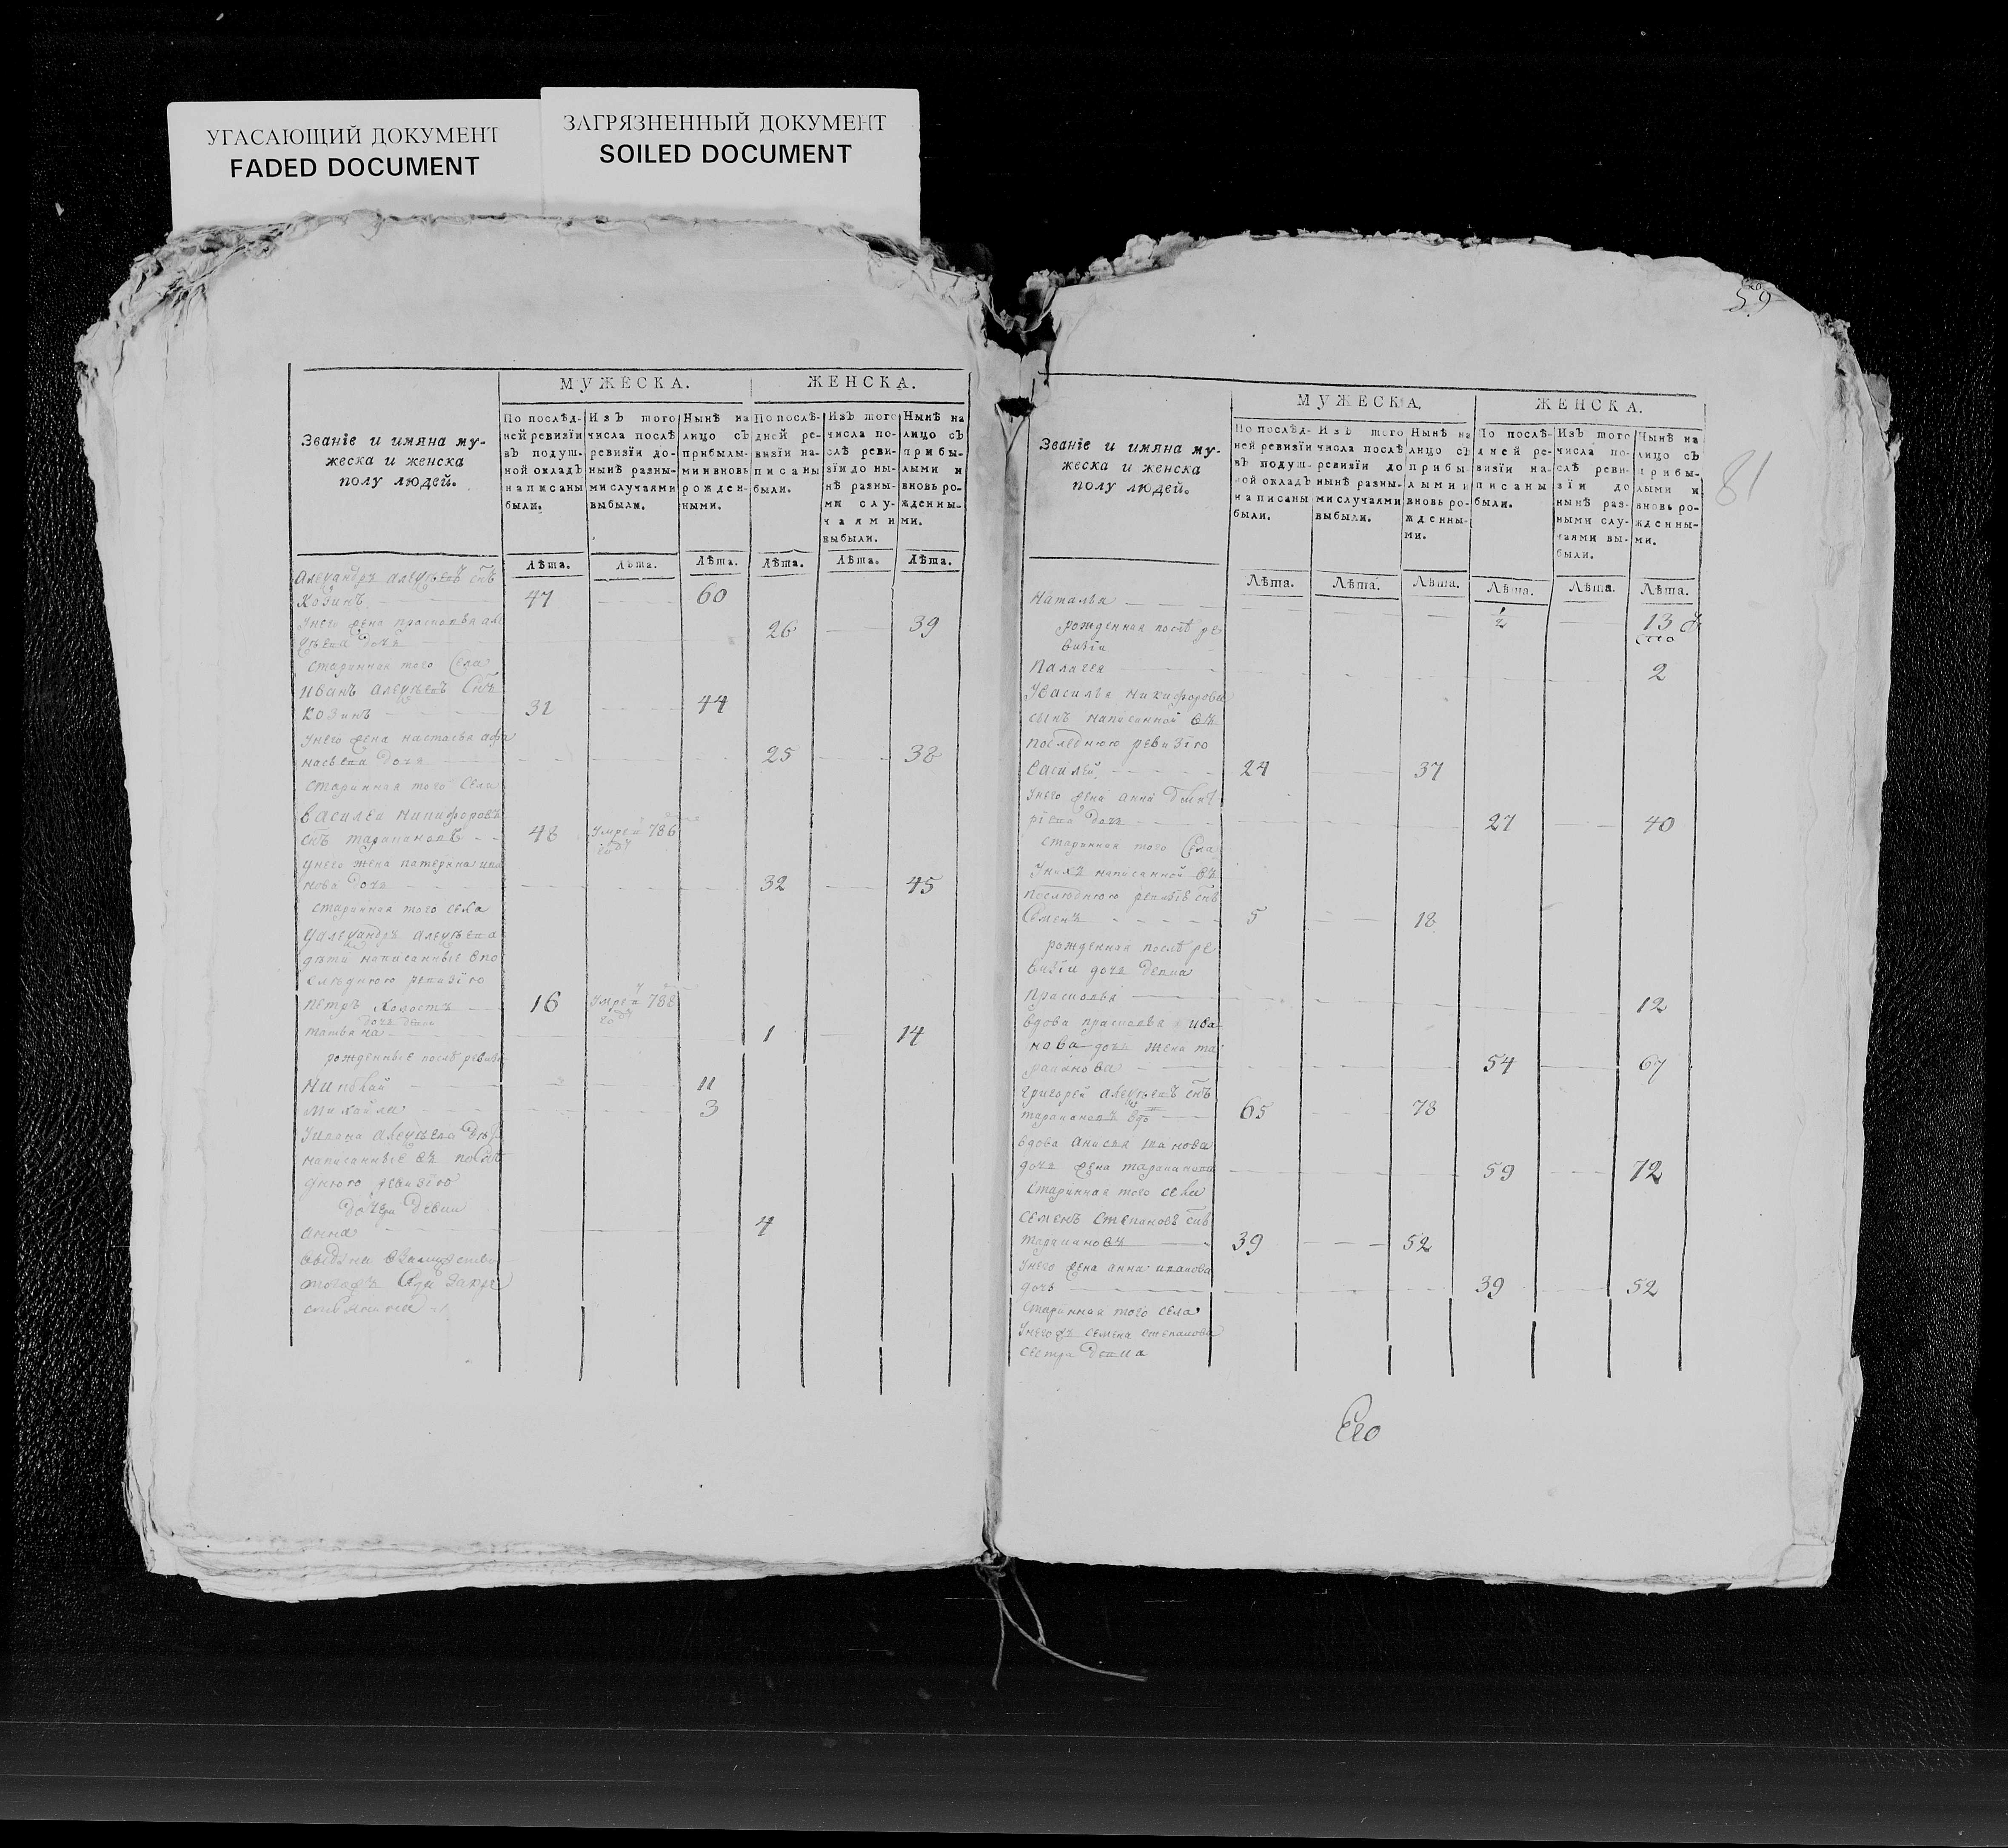 УГАСАЮЩИЙ ДОКУМЕНТ
FADED DOCUMENT
ЗАГРЯЗНЕННЫЙ ДОКУМЕНТ
SOILED DOCUMENT
МУЖЕСКА. ЖЕНСКА.
Званіе и имяна му-
жеска и женска
полу людей.
По послѣд-
ней ревизіи
въ подуш-
ной окладъ
написаны
были.
Изъ того
числа послѣ
ревизіи до-
нынѣ разны-
ми случаями
выбыли.
Нынѣ на
лицо съ
прибылы-
ми и вновь
рожден-
ными.
По послѣ-
дней ре-
визіи на-
писаны
были.
Изъ того
числа по-
слѣ реви-
зіи до ны-
нѣ разны-
ми слу-
чаями
выбыли.
Нынѣ на
лицо съ
прибы-
лыми и
вновь ро-
жденны-
ми.
Лѣта. Лѣта. Лѣта. Лѣта. Лѣта. Лѣта.
Александръ алеѯѣевъ снъ
Козинъ 47 60
Унего жена прасковья але
ѯѣева дочь 26 39
старинная того Села
Иванъ алеѯѣевъ Снъ
Козинъ 31 44
Унего жена настасья афа
насьева дочь 25 38
старинная того Села
Василеи никифоровъ
снъ таракановъ 48 Умре 786
унего жена катерина ива
нова дочь 32 45
старинная того села
Уалеѯандръ алеѯѣева
дѣти написанные впо
слѣднюю ревизію
Петръ холостъ 16 Умре 788
дочь девка
татьяна 1 14
рожденные послѣ ревизи
Николай 11
Михайла 3
Уивана алеѯѣева дѣти
написанные въ послѣ
днюю ревизію
дочери девки
анна 4
выдана взамужство
тогожъ Села
59
81
МУЖЕСКА. ЖЕНСКА.
Званіе и имяна му-
жеска и женска
полу людей.
По послѣд-
ней ревизіи
въ подуш-
ной окладъ
написаны
были.
Изъ того
числа послѣ
ревизіи до
нынѣ разны-
ми случаями
выбыли.
Нынѣ на
лицо съ
прибы-
лыми и
вновь ро-
жденны-
ми.
По послѣ-
дней ре-
визіи на-
писаны
были.
Изъ того
числа по-
слѣ реви-
зіи до
нынѣ раз-
ными слу-
чаями вы-
были.
Нынѣ на
лицо съ
прибы-
лыми и
вновь ро-
жденны-
ми.
Лѣта. Лѣта. Лѣта. Лѣта. Лѣта. Лѣта.
Наталья 1/2 13
рожденная послѣ ре
визіи
Палагея 2
Увасилья никифорова
сынъ написанной въ
последнюю ревизію
Василей 24 37
Унего жена анна дмит
ріева дочь 27 40
старинная того Села
Унихъ написанной въ
последнюю ревизіе снъ
Семенъ 5 18
рожденная послѣ ре
визіи дочь девка
Прасковья 12
Вдова прасковья ива
нова дочь жена та
раканова 54 67
Григорей алеѯѣевъ снъ
таракановъ вдъ 65 78
вдова анисья ива нова
дочь жена тараканова 59 72
старинная того села
Семенъ Степановъ снъ
таракановъ 39 52
Унего жена анна иванова
дочь 39 52
старинная того села
Унегожъ семена степанова
сестра девка
Его